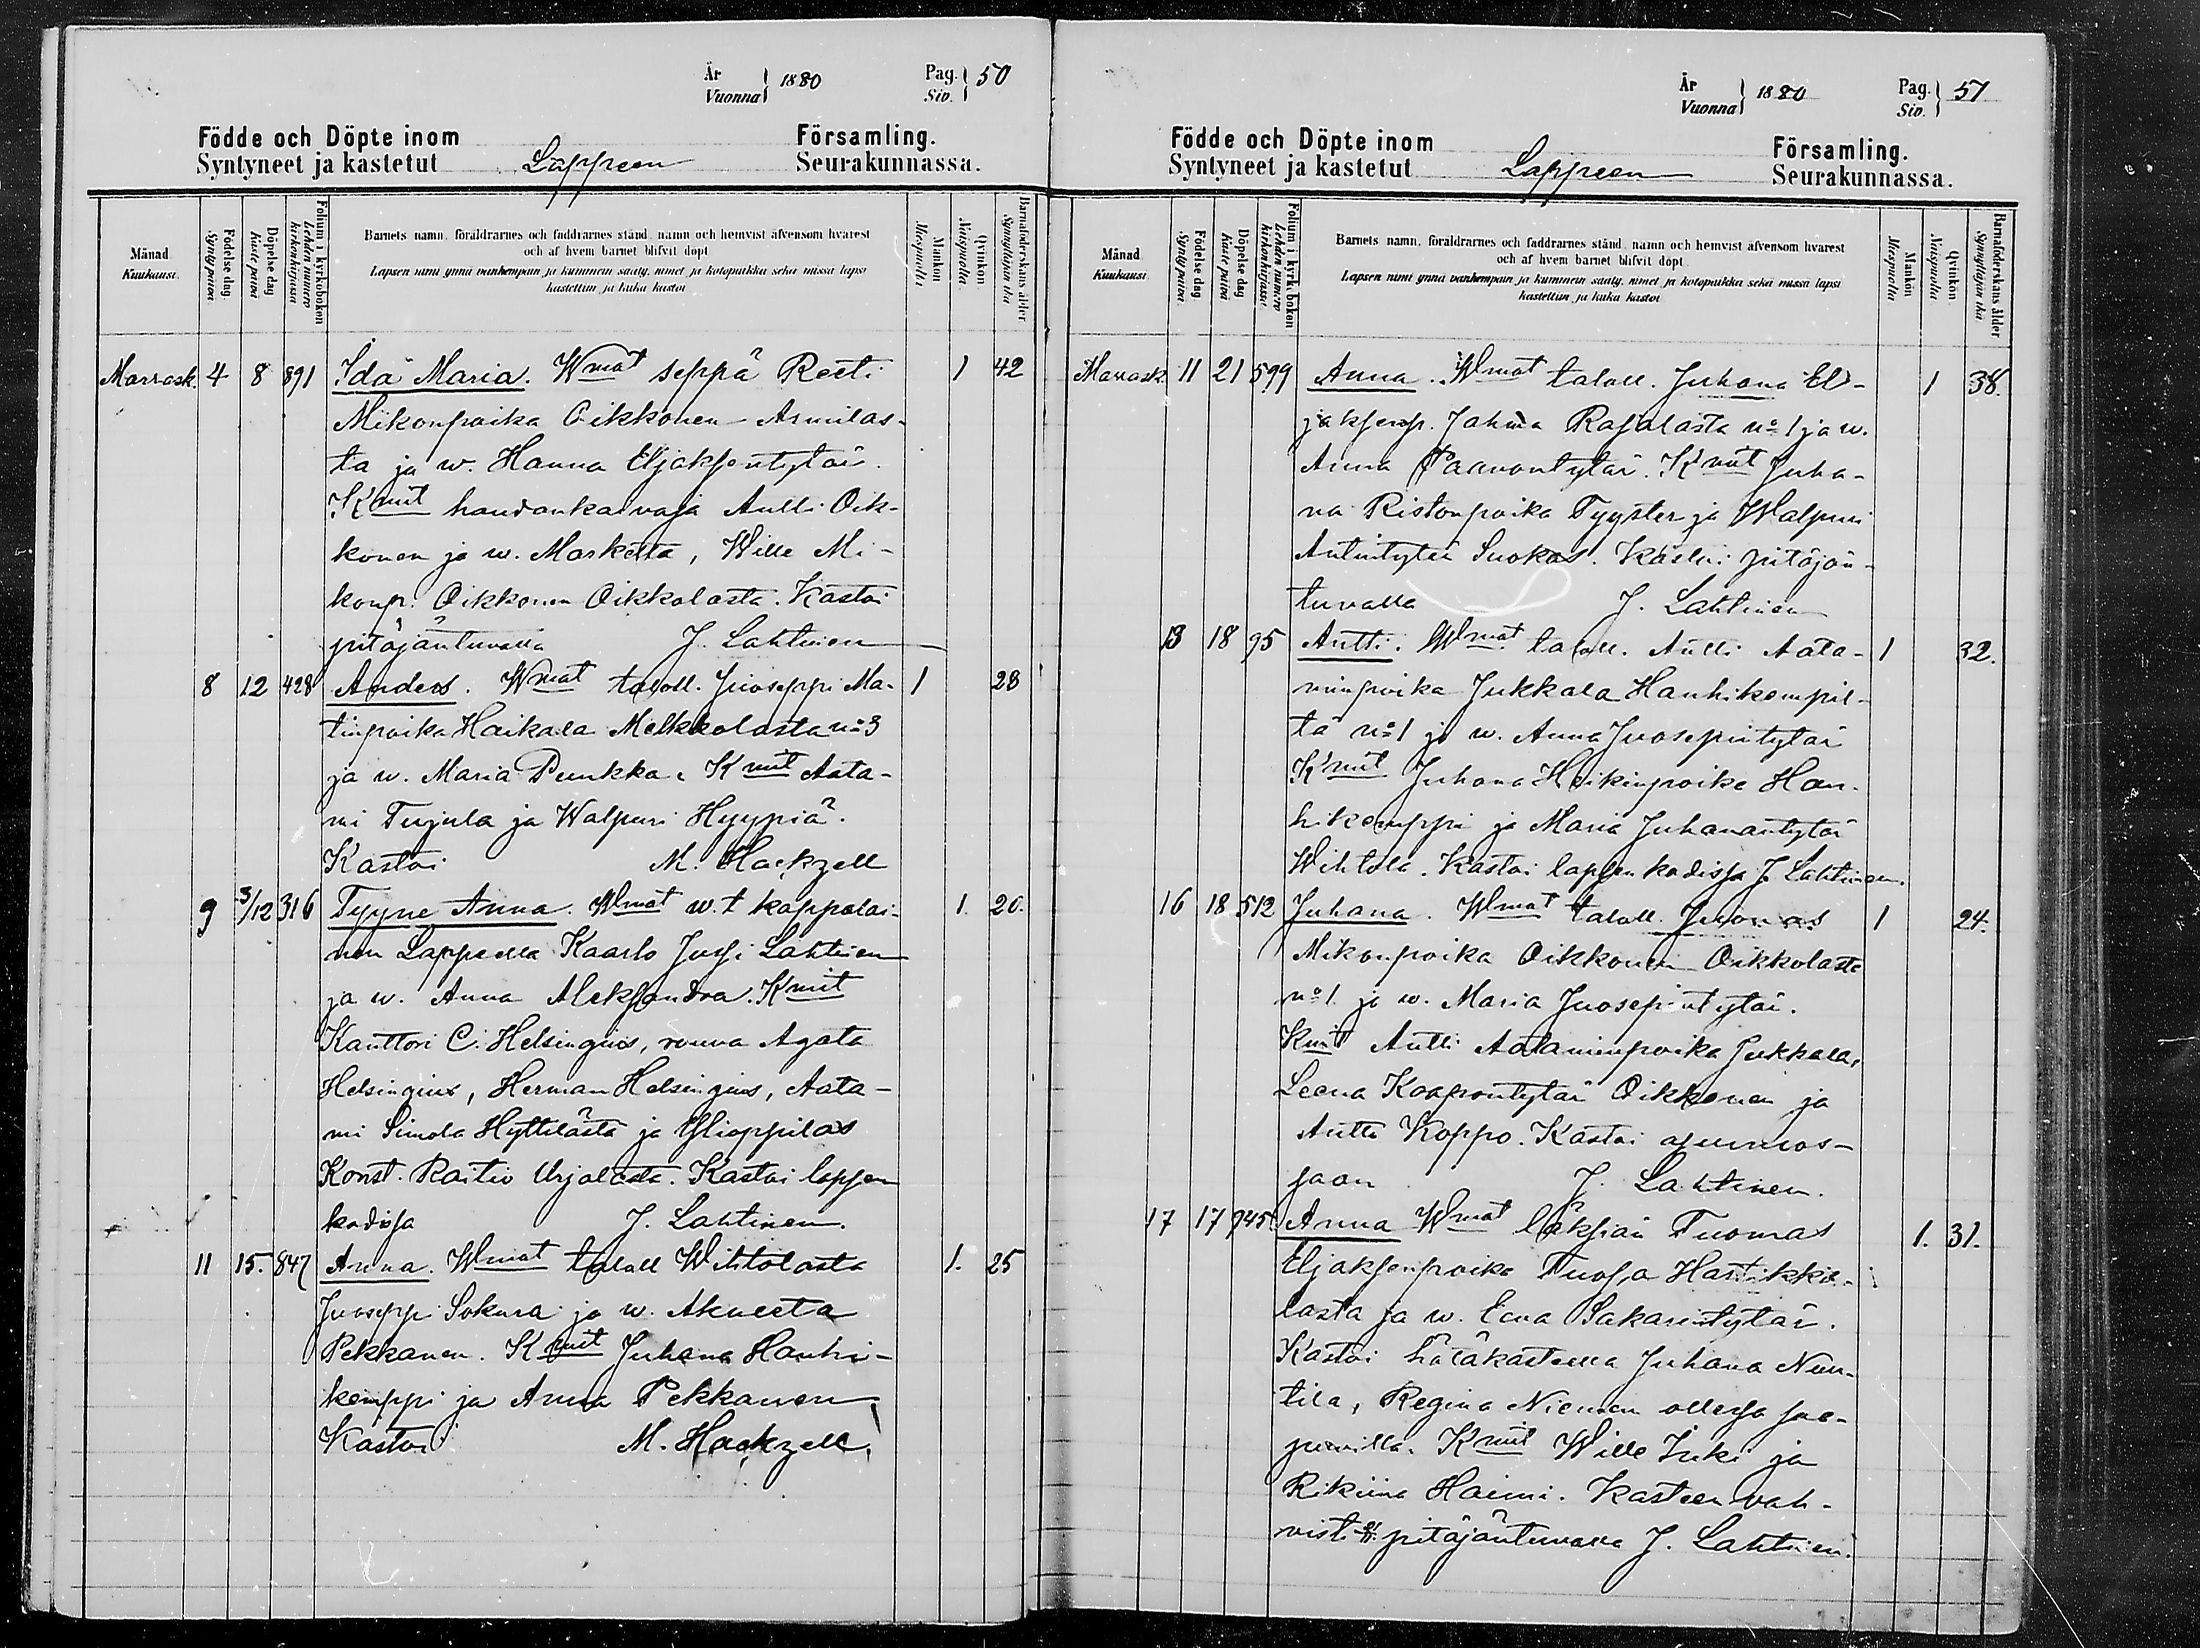 År
Vuonna 1880
Pag.
Siv. 50
Födde och Döpte inom Församling.
Syntyneet ja kastetut Lappeen Seurakunnassa.
Månad
Kuukausi.
Födelse dag
Syntypäivä
Döpelse dag
Kastepäivä
Folium i kyrkoboken
Lehden numero kirkonkirjassa
Barnets namn, föräldrarnes och faddrarnes stånd, namn och hemvist äfvensom hvarest
och af hvem barnet blifvit döpt
Lapsen nimi ynnä vanhempain ja kummein sääty, nimet ja kotopaikka sekä missä lapsi
kastettiin ja kuka kastoi
Mankön
Miespuolta
Qvinkön
Naispuolta
Barnaföderskans ålder
Synnyttäjän ikä
Marrask. 4 8 891 Ida Maria. Wmat seppä Reeti 1 42
Mikonpoika Oikkonen Armilas-
ta ja w. Hanna Eljaksentytär.
Kmit haudankaivaja Antti Oik-
konen ja w. Marketta, Wille Mi-
konp. Oikkonen Oikkolasta. Kastoi
pitäjäntuvalla J. Lahtinen
8 12 428 Anders. Wmat taloll. Juoseppi Ma- 1 28
tinpoika Haikala Melkkolasta no 3
ja w. Maria Punkka. Kmit Aata-
mi Tujula ja Walpuri Hyypiä.
Kastoi M. Hackzell
9 3/12 316 Tyyne Anna. Wmat w.t. kappalai- 1. 20.
nen Lappeella Kaarlo Jussi Lahtinen
ja w. Anna Aleksandra. Kmit
Kanttori C. Helsingius, rouva Agata
Helsingius, Herman Helsingius, Aata-
mi Simola Hyttilästä ja Ylioppilas
Konst. Raitio Urjalasta. Kastoi lapsen
kodissa J. Lahtinen.
11 15. 847 Anna. Wmat taloll Wihtolasta 1. 25
Juoseppi Sokura ja w. Akneeta
Pekkanen. Kmit Juhana Hanhi-
kemppi ja Anna Pekkanen
Kastoi M. Hackzell.
År
Vuonna 1880
Pag.
Siv. 51
Födde och Döpte inom Församling.
Syntyneet ja kastetut Lappeen Seurakunnassa.
Månad
Kuukausi
Födelse dag
Syntypäivä
Döpelse dag
Kastepäivä
Folium i kyrkoboken
Lehden numero kirkonkirjassa
Barnets namn, föräldrarnes och faddrarnes stånd, namn och hemvist äfvensom hvarest
och af hvem barnet blifvit döpt
Lapsen nimi ynnä vanhempain ja kummein sääty, nimet ja kotopaikka sekä missä lapsi
kastettiin ja kuka kastoi
Mankön
Miespuolta
Qvinkön
Naispuolta
Barnaföderskans ålder
Synnyttäjän ikä
Marrask. 11 21 599 Anna. Wmat taloll. Juhana El- 1 38.
jaksenp. Rasalasta no 1 ja w.
Anna Paavontytär. Kmit Juha-
na Ristonpoika Tyyster ja Walpuri
Antintytär Suokas. Kastoi pitäjän-
tuvalla J. Lahtinen
13 18 95 Antti. Wmat taloll. Antti Aata- 1 32.
minpoika Jukkala Hanhikempil-
tä no 1 ja w. Anna Juosepintytär
Kmit Juhana Heikinpoika Han-
hikemppi ja Maria Juhanantytär
Wihtola. Kastoi lapsen kodissa J. Lahtinen.
16 18 512 Juhana. Wmat taloll. 1 24.
Mikonpoika Oikkonen Oikkolasta
no 1. ja w. Maria Juosepintytär.
Kmit Antti Aataminpoika Jukkala,
Leena Kaapontytär Oikkonen ja
Antti Koppo. Kastoi
J. Lahtinen.
17 17 945 Anna Wmat Tuomas 1. 31.
Eljaksenpoika Tuosa Hartikka-
lasta ja w. Eeva Sakarintytär.
Kastoi hätäkasteella Juhana Nun-
tila, Regina Nieminen ollessa
Kmit Wille Inki ja
Rikiina Haimi. Kasteen vah-
visti pitäjäntuvalla J. Lahtinen.